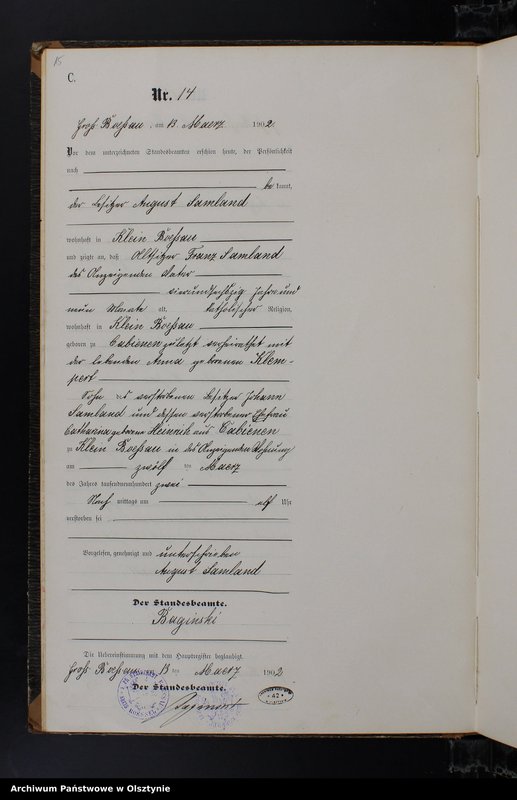 15
C.
Nr. 14
Groß Boeßau, am 13. Maerz 1902.
Vor dem unterzeichneten Standesbeamten erschien heute, der Persönlichkeit
nach
be kannt,
der Besitzer August Samland
wohnhaft in Klein Boeßau
und zeigte an, daß Altsitzer Franz Samland
des Anzeigenden Vater
vierundsechszig Jahre und
neun Monate alt, katholischer Religion,
wohnhaft in Klein Boeßau
geboren zu Cabienen zuletzt verheirathet mit
der lebenden Anna geborenen Klem-
pert
Sohn des verstorbenen Besitzer Johann
Samland und dessen verstorbener Ehefrau
Catharina geborene Heinrik aus Cabienen
zu Klein Boeßau in des Anzeigenden Wohnung
am zwölf ten Maerz
des Jahres tausendneunhundert zwei
Nach mittags um elf Uhr
verstorben sei
Vorgelesen, genehmigt und unterschrieben
August Samland
Der Standesbeamte.
Baginski
Die Uebereinstimmung mit dem Hauptregister beglaubigt.
Groß Boeßau, am 13 ten Maerz 1902
Der Standesbeamte.
Baginski
42
Archiwum Państwowe w Olsztynie